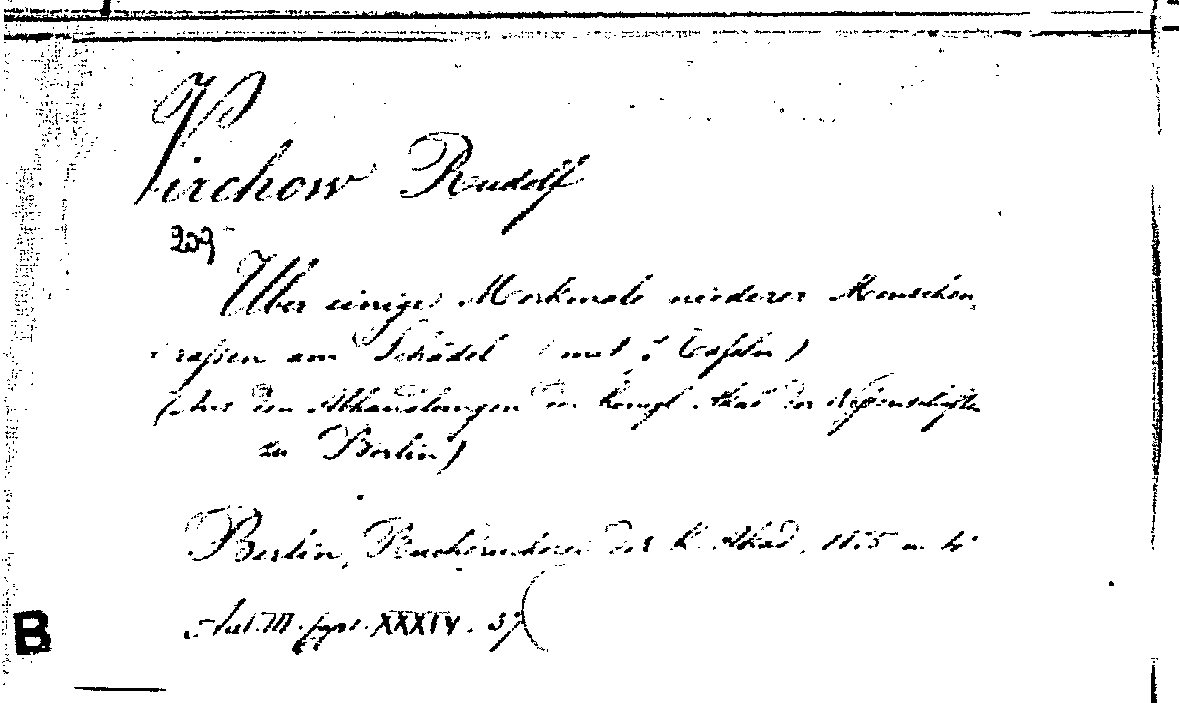 Virchow Rudolf
209
Über einige Merkmale niederer Menschen
raßen am Schädel (mit 7 Tafeln)
(Aus den Abhandlungen der königl. Akad der Wißenschaften
zu Berlin)
Berlin, Buchdruckerei der k. Akad. 1875 in 4°
XXXIV. 37
B